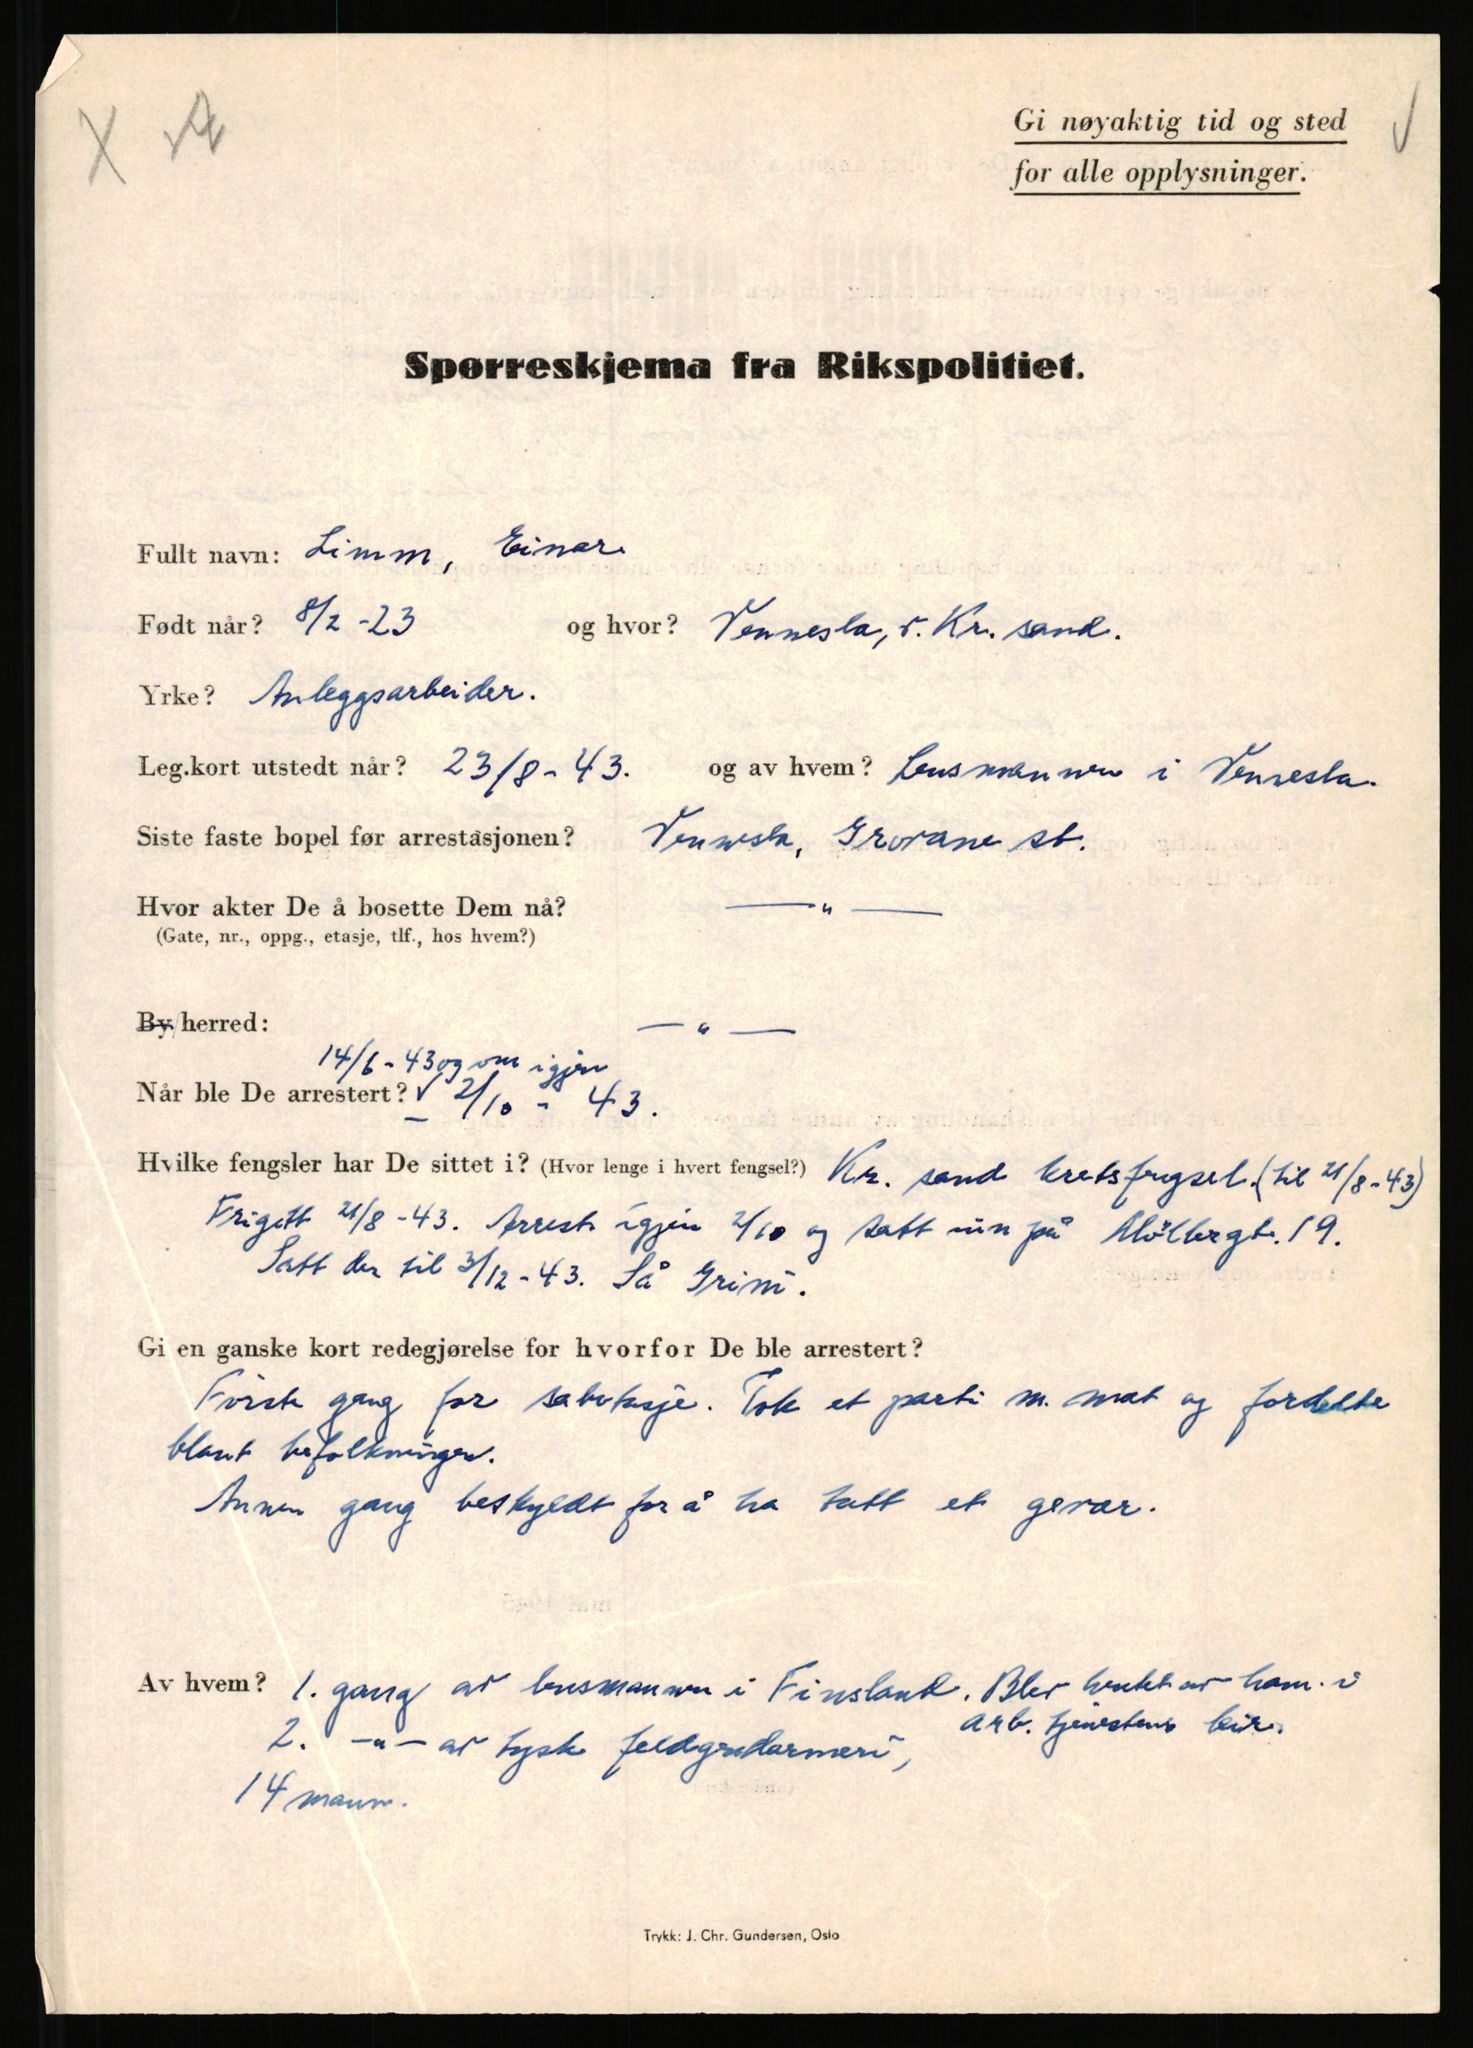 Gi nøyaktig tid og sted
for alle opplysninger.
Spørreskjema fra Rikspolitiet.
Fullt navn: Limm, Einar
Født når? 8/2-23 og hvor? Vennesla, v. Kr. sand.
Yrke? Anleggsarbeider.
Leg.kort utstedt når? 23/8-43. og av hvem? Lensmannen i Vennesla.
Siste faste bopel før arrestasjonen? Vennesla, Grovane st.
Hvor akter De å bosette Dem nå? —„—
(Gate, nr., oppg., etasje, tlf., hos hvem?)
By/herred: —„—
14/6-43 og om igjen
Når ble De arrestert? 2/10-43.
Hvilke fengsler har De sittet i? (Hvor lenge i hvert fengsel?) Kr. sand kretsfengsel. (til 21/8-43)
Frigitt 21/8-43. Arrest. igjen 2/10 og satt inn på Møllergt. 19.
Satt der til 3/12-43. Så Grini.
Gi en ganske kort redegjørelse for hvorfor De ble arrestert?
Første gang for sabotasje. Tok et parti m. mat og fordelte
blant befolkningen.
Annen gang beskyldt for å ha tatt et gevær.
Av hvem? 1. gang av lensmannen i Finsland. Blev hentet av ham i
arb. tjenestens leir.
2. —„— av tysk feldgendarmeri,
14 mann.
Trykk: J. Chr. Gundersen, Oslo